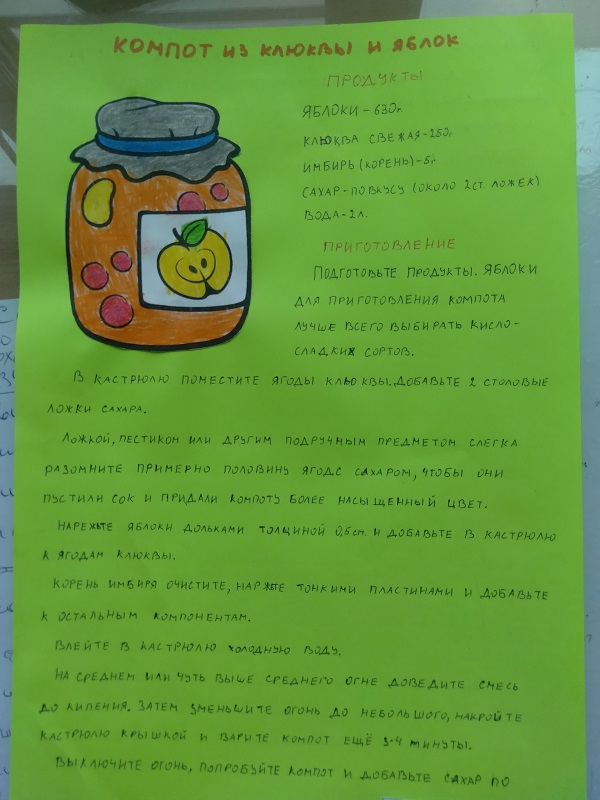 КОМПОТ ИЗ КЛЮКВЫ И ЯБЛОК
ПРОДУКТЫ
ЯБЛОКИ – 630г
КЛЮКВА СВЕЖАЯ – 250г
ИМБИРЬ (КОРЕНЬ) – 5г
САХАР – ПОВКУСУ (ОКОЛО 2СТ. ЛОЖЕК)
ВОДА – 2л.
ПРИГОТОВЛЕНИЕ
ПОДГОТОВЬТЕ ПРОДУКТЫ. ЯБЛОКИ
ДЛЯ ПРИГОТОВЛЕНИЯ КОМПОТА
ЛУЧШЕ ВСЕГО ВЫБИРАТЬ КИСЛО-
СЛАДКИХ СОРТОВ.
В КАСТРЮЛЮ ПОМЕСТИТЕ ЯГОДЫ КЛЮКВЫ. ДОБАВЬТЕ 2 СТОЛОВЫЕ
ЛОЖКИ САХАРА.
ЛОЖКОЙ, ПЕСТИКОМ ИЛИ ДРУГИМ ПОДРУЧНЫМ ПРЕДМЕТОМ СЛЕГКА
РАЗОМНИТЕ ПРИМЕРНО ПОЛОВИНУ ЯГОДС САХАРОМ, ЧТОБЫ ОНИ
ПУСТИЛИ СОК И ПРИДАЛИ КОМПОТУ БОЛЕЕ НАСЫЩЕННЫЙ ЦВЕТ.
НАРЕЖЬТЕ ЯБЛОКИ ДОЛЬКАМИ ТОЛЩИНОЙ 0,5см. И ДОБАВЬТЕ В КАСТРЮЛЮ
К ЯГОДАМ КЛЮКВЫ.
КОРЕНЬ ИМБИРЯ ОЧИСТИТЕ, НАРЖЬТЕ ТОНКИМИ ПЛАСТИНАМИ И ДОБАВЬТЕ
К ОСТАЛЬНЫМ КОМПОНЕНТАМ.
ВЛЕЙТЕ В КАСТРЮЛЮ ХОЛОДНУЮ ВОДУ.
НА СРЕДНЕМ ИЛИ ЧУТЬ ВЫШЕ СРЕДНЕГО ОГНЕ ДОВЕДИТЕ СМЕСЬ
ДО КИПЕНИЯ. ЗАТЕМ УМЕНЬШИТЕ ОГОНЬ ДО НЕБОЛЬШОГО, НАКРОЙТЕ
КАСТРЮЛЮ КРЫШКОЙ И ВАРИТЕ КОМПОТ ЕЩЁ 3-4 МИНУТЫ.
ВЫКЛЮЧИТЕ ОГОНЬ, ПОПРОБУЙТЕ КОМПОТ И ДОБАВЬТЕ САХАР ПО